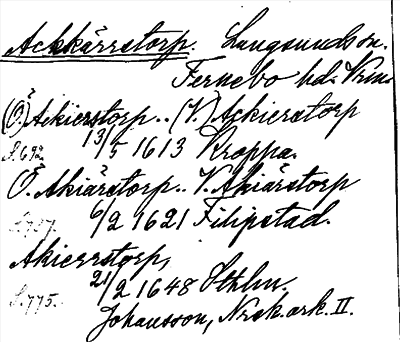 Ackkärrstorp. Långsunds sn.
Fernebo hd. Vrml
(Ö.) Åckierstorp.. (V.) Ackierstorp
S.692. 13/5 1613 Kroppa.
Ö. Akiärstorp.. V. Akiärstorp
S.757. 6/2 1621 Filipstad.
Akierrstorp,
21/2 1648 Sthlm.
S.775.
Johansson, Norsk.ark. II.